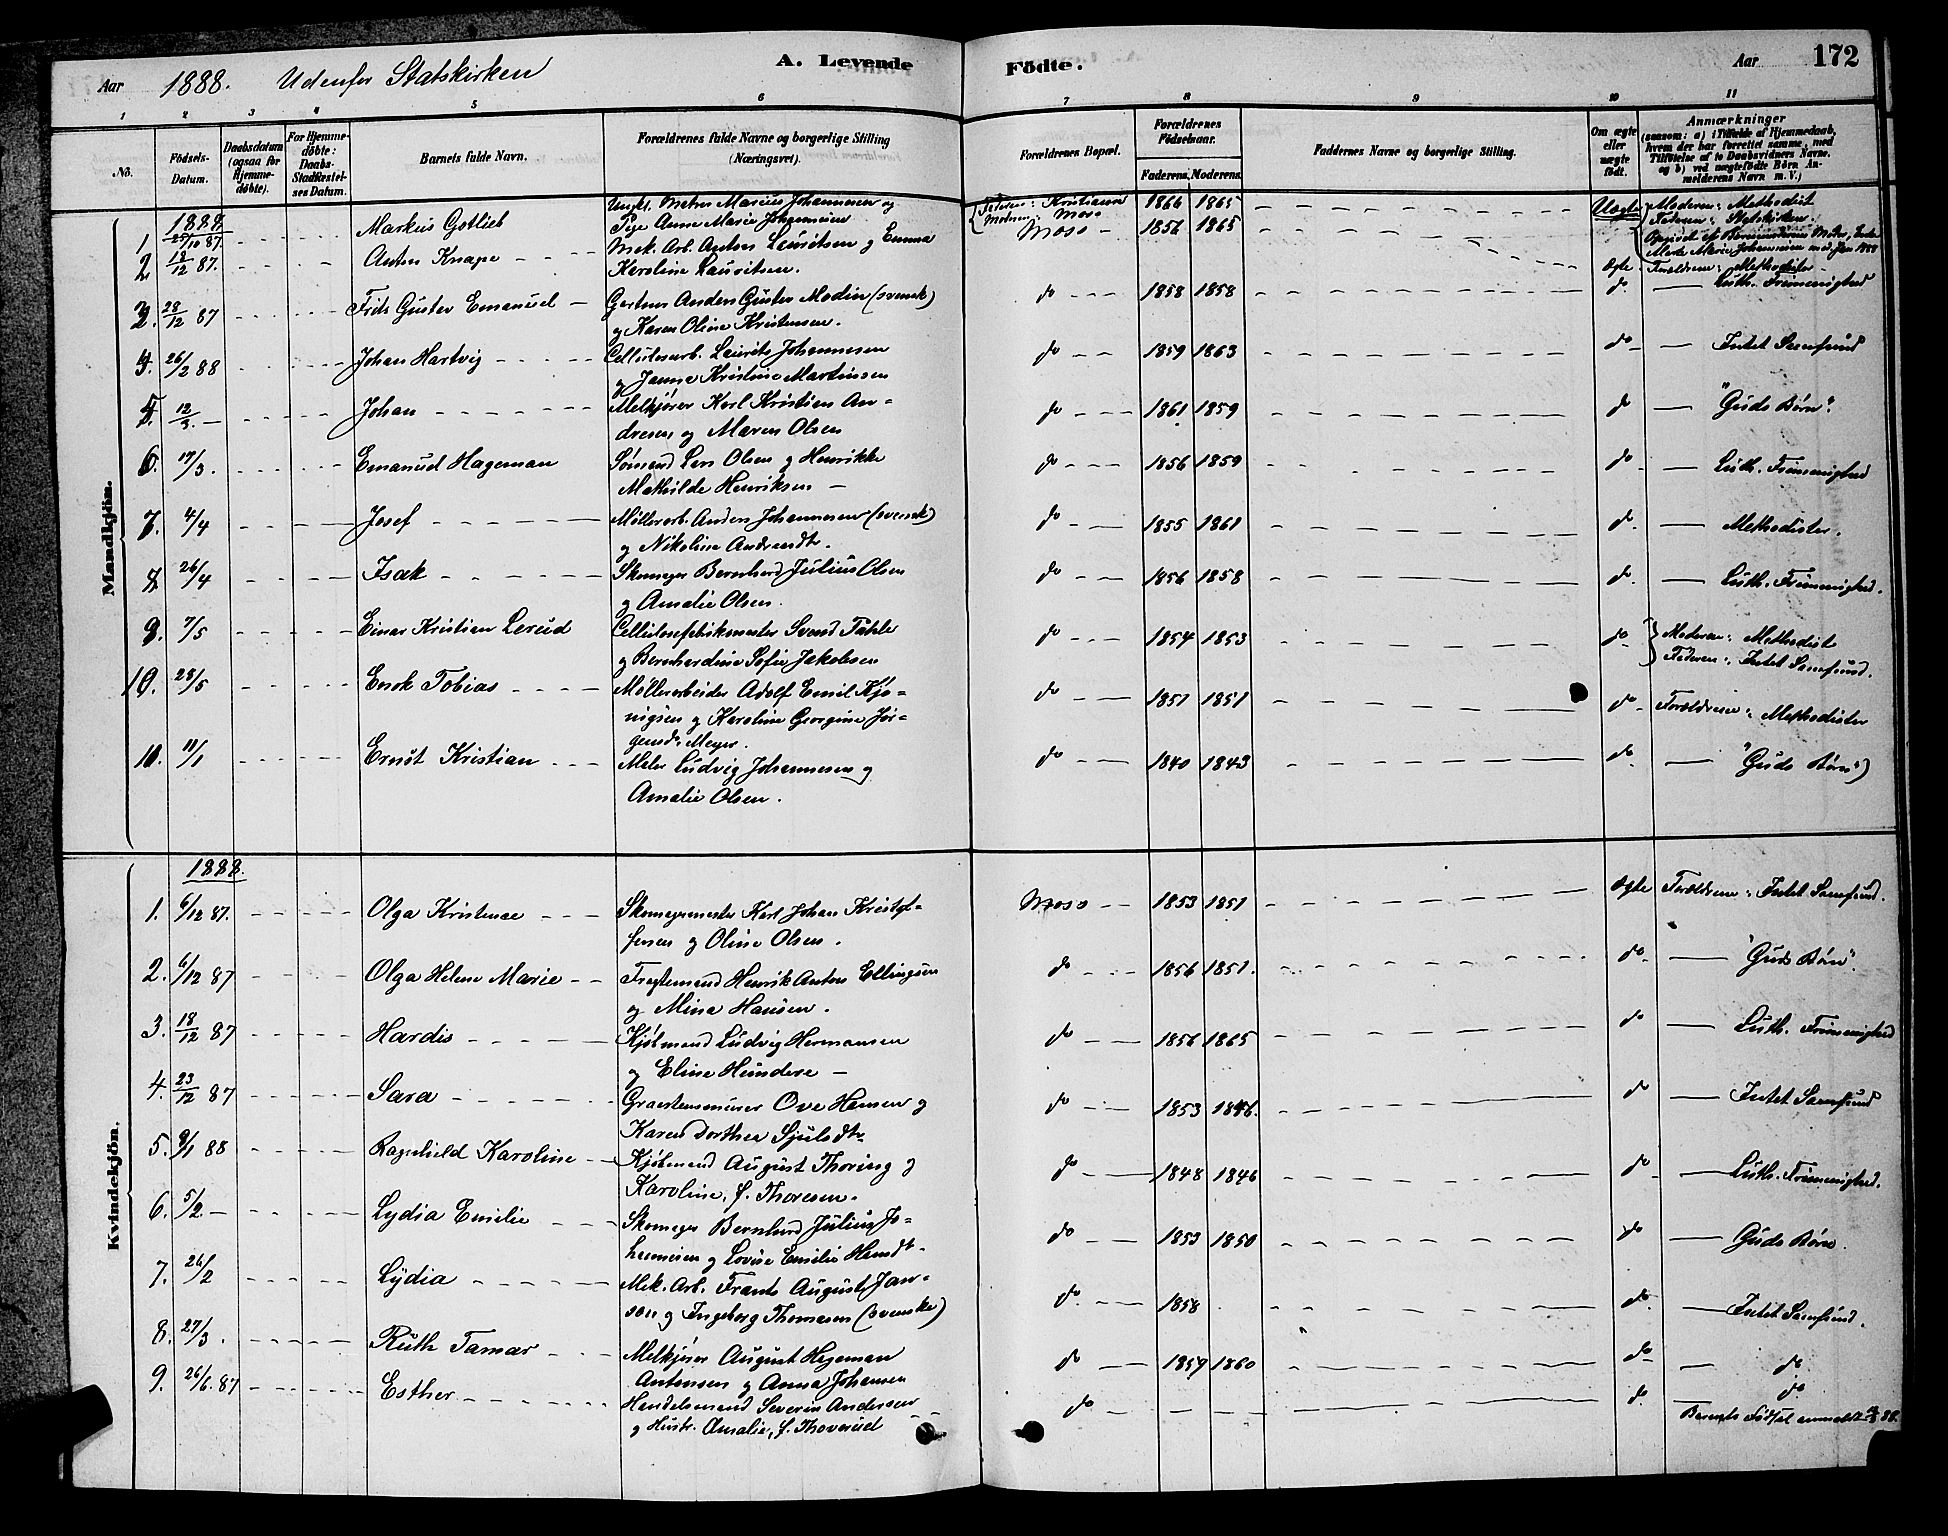 Aar 1888. Udenfor Statskirken A. Levende Födte. Aar 172
1 2 3 4 5 6 7 8 9 10 11
No. Födsels-Datum. Daabsdatum (ogsaa for Hjemme-döbte). For Hjemme-döbte: Daabs-Stadfæstel-ses Datum. Barnets fulde Navn. Forældrenes fulde Navne og borgerlige Stilling (Næringsvei). Forældrenes Bopæl. Forældrenes Födselsaar. Faderens. Moderens. Faddernes Navne og borgerlige Stilling. Om ægte eller uægte födt. Anmærkninger (saasom: a) i Tilfælde af Hjemmedaab, hvem der har forrettet samme, med Tilföielse af to Daabsvidners Navne, og b) ved uægtefödte Börn An-melderens Navn m. V.)
Mandkjön.
1888
1. 25/10 87. Markus Gotlieb Ungk. Marius Johannesen og Pige Anne Marie Johannesen Faderen: Kristiania Moderen: Moss 1866 1865 Uægte Moderen: Methodist Faderen: Statskirken.
2. 18/12 87. Anton Knape Mek. Arb. Anton Lauritsen og Emma Karoline Lauritsen. Moss 1856 1865 Ægte Forældrene: Methodister
3. 28/12 87 Frits Gustav Emanuel Gartner Anders Gustav Modin (svensk) og Karen Oline Kristensen. do 1858 1858 do Luth. Frimenighed
4. 26/2 88 Johan Hartvig Cellulosearb. Laurits Johannesen og Janna Kristine Martinsen do 1859 1863 do Intet Samfund
5. 12/3. Johan Melkjører Karl Kristian An-dresen og Maren Olsen do 1861 1859 do "Guds Børn".
6. 17/3. Emanuel Hageman Sømand Lars Olsen og Henrikke Mathilde Henriksen do 1856 1859 do Luth. Frimenighed
7. 4/4 Josef Møllerarb. Anders Johannesen (svensk) og Nikoline Andreasdtr. do 1855 1861 do Methodister.
8. 26/4 Isak Skomager Bernhard Julius Olsen og Amalie Olsen. do 1856 1858 do Luth. Frimenighed.
9. 7/5 Einar Kristian Lerud Cellulosefabrikmester Svend Tahle og Bernhardine Sofie Jakobsen do 1854 1853 do Moderen: Methodist Faderen: Intet Samfund.
10. 28/5 Enok Tobias Møllerarbeider Adolf Emil Kjø-nigsen og Karoline Georgine Jør-gensdr. Meyer. do 1851 1851 do Forældrene: Methodister
11. 11/1 Ernst Kristian Maler Ludvig Johannesen og Amalie Olsen. do 1840 1843 do "Guds Børn")
Kvindekjön.
1888.
1. 6/12 87. Olga Kristence Skomagermester Karl Johan Kristof-fersen og Oline Olsen. Moss 1853 1851 Ægte Forældrene: Intet Samfund.
2. 6/12 87 Olga Helene Marie Fragtemand Henrik Anton Ellingsen og Mina Hansen. do 1856 1851. do "Guds Børn".
3. 18/12 87 Hardis Kjøbmand Ludvig Hermansen og Eline Hundere do 1856 1865 do Luth. Frimenighed
4. 23/12 87 Sara Graastensmurer Ove Hansen og Karen Dorthea Sjulsdtr. do 1853 1846. do Intet Samfund
5. 9/1 88 Ragnhild Karoline Kjøbmand August Thoring og Karoline, f. Thoresen. do 1848 1846 do Luth. Frimenighed.
6. 5/2 Lydia Emilie Skomager Bernhard Julius Jo-hannesen og Lovise Emilie Hansdtr. do 1853 1850 do Guds Børn.
7. 26/2 Lydia Mek. Arb. Frants August Jan-son og Ingeborg Thomasen (svenske) do 1858 do Intet Samfund.
8. 27/3. Ruth Tamar Melkjører August Hageman Antonsen og Anna Johansen do 1859 1860 do do
9. 26/6. 87 Esther Handelsmand Severin Andersen og Hustr. Amalie, f. Thoverud do do do
Barnets Fødsel anmeldt 88.